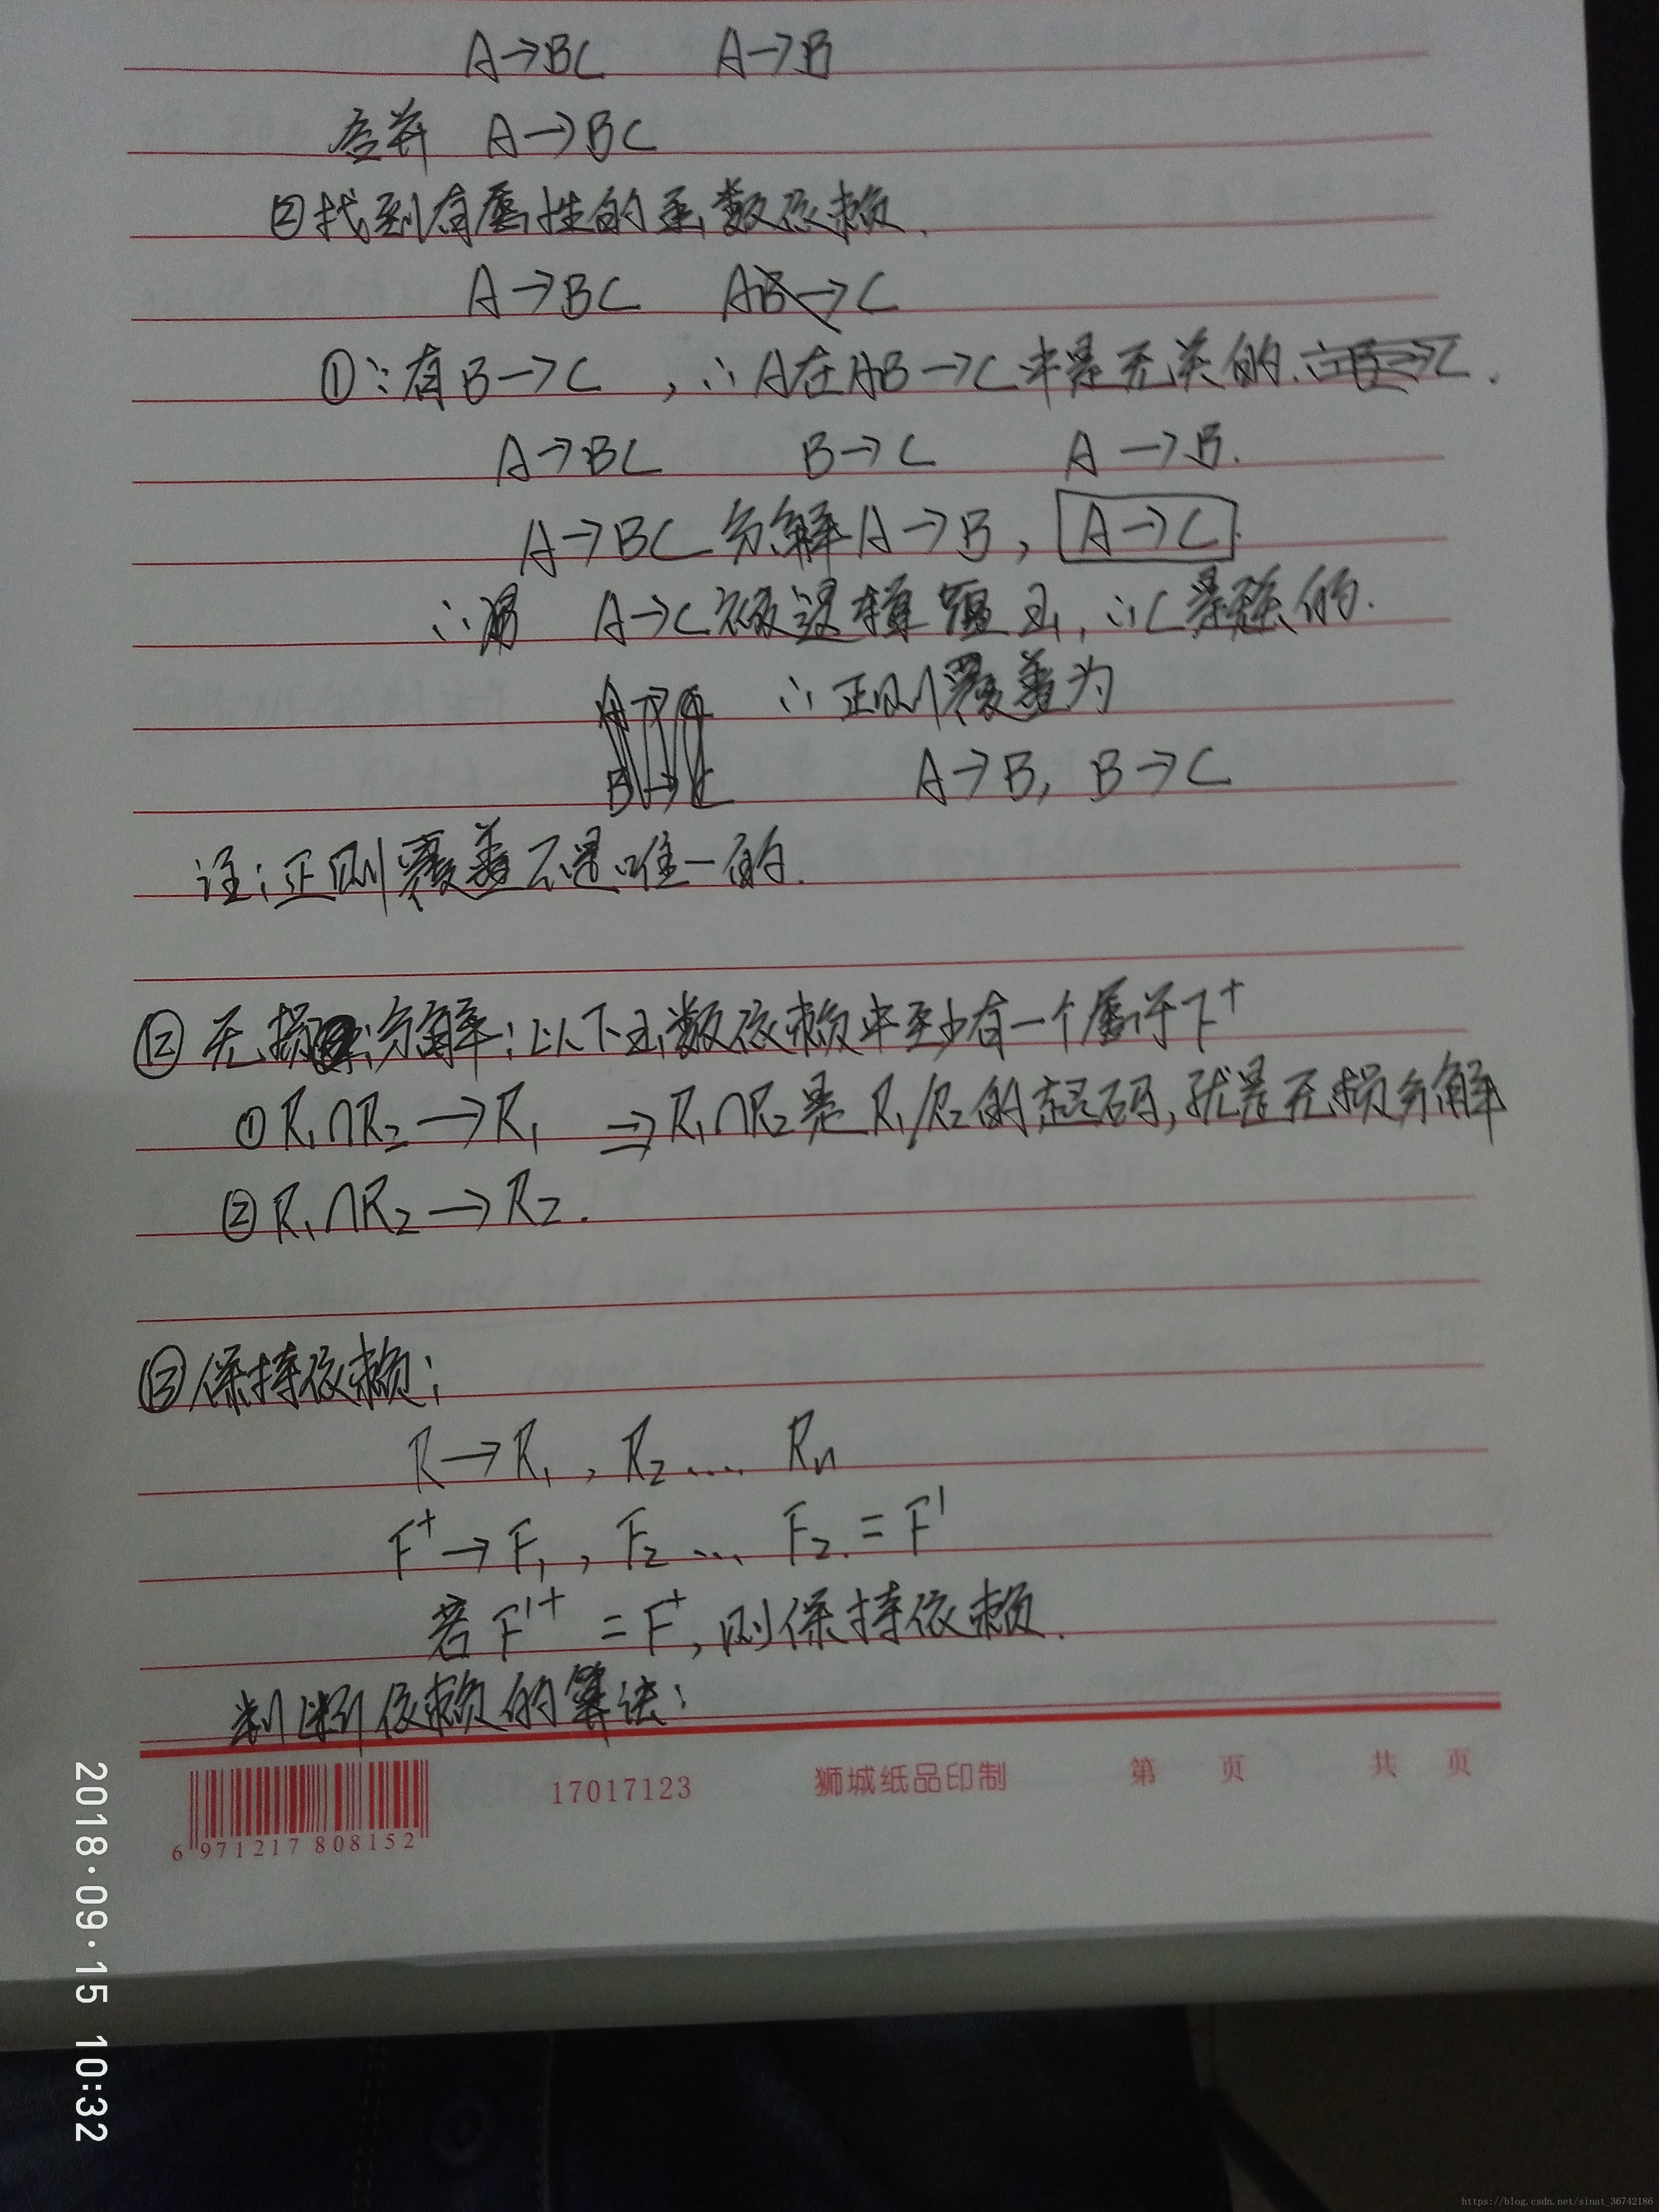 A→BC A→B
合并 A→BC
②找到有属性的函数依赖.
A→BC AB→C
①∵有B→C,∴A在AB→C中是无关的.
A→BC B→C A→B.
A→BC分解A→B,A→C
∴ A→C被逻辑蕴涵,∴C是 的.
∴正则覆盖为
B→C A→B, B→C
注:正则覆盖不是唯一的.
⑫无损分解:以下函数依赖中至少有一个属于F⁺
①R₁∩R₂→R₁ ⇒R₁∩R₂是R₁/R₂的超码,就是无损分解
②R₁∩R₂→R₂.
⑬保持依赖:
R→R₁,R₂.... Rn
F⁺→F₁,F₂... F₂.=F'
若F'⁺=F⁺,则保持依赖.
判断依赖的算法:
6 971217 808152
17017123 狮城纸品印制 第 页 共 页
2018·09·15 10:32
https://blog.csdn.net/sinat_36742186